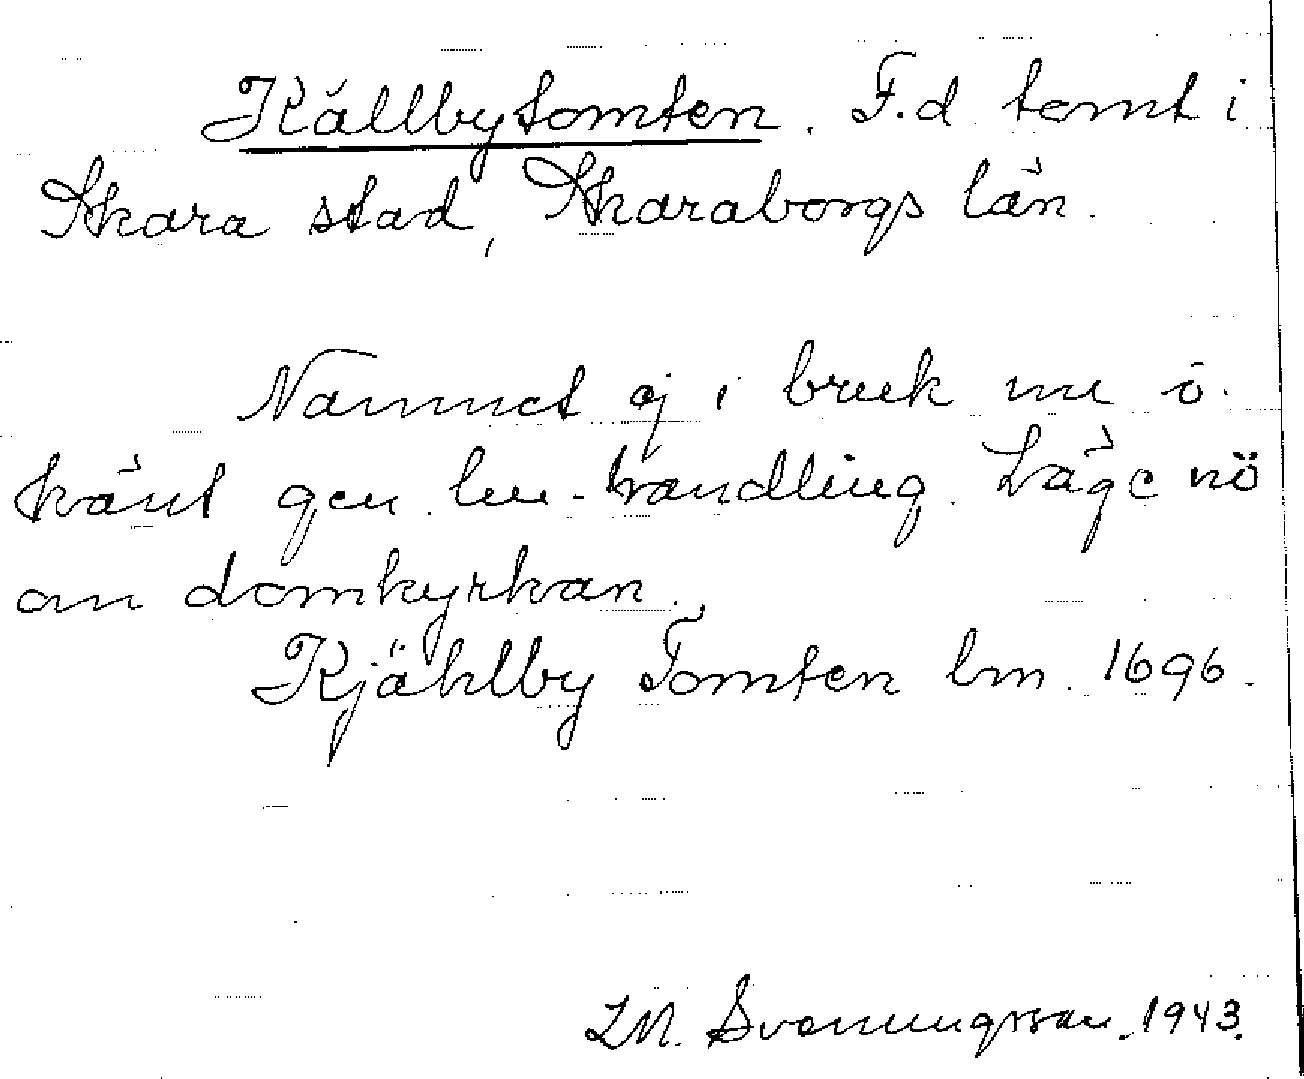 Källbytomten. F.d tomt i
Skara stad, Skaraborgs län.
Namnet ej i bruk nu o.
känt gen. lm-handling. Läge nö
om domkyrkan.
Kjählby Tomten lm. 1696.
Svenungsson. 1943.